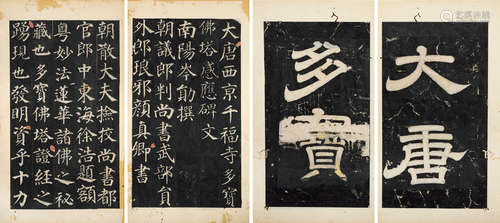 大唐
多寶
大唐西京千福寺多寶
佛塔感應碑文
南陽岑勛撰
朝議郎判尚書武部員
外郎琅邪顏真卿書
朝散大夫撿挍尚書都
官郎中東海徐浩題額
粵妙法蓮華諸佛之秘
藏也多寶佛塔證經之
踴現也發明資乎十力